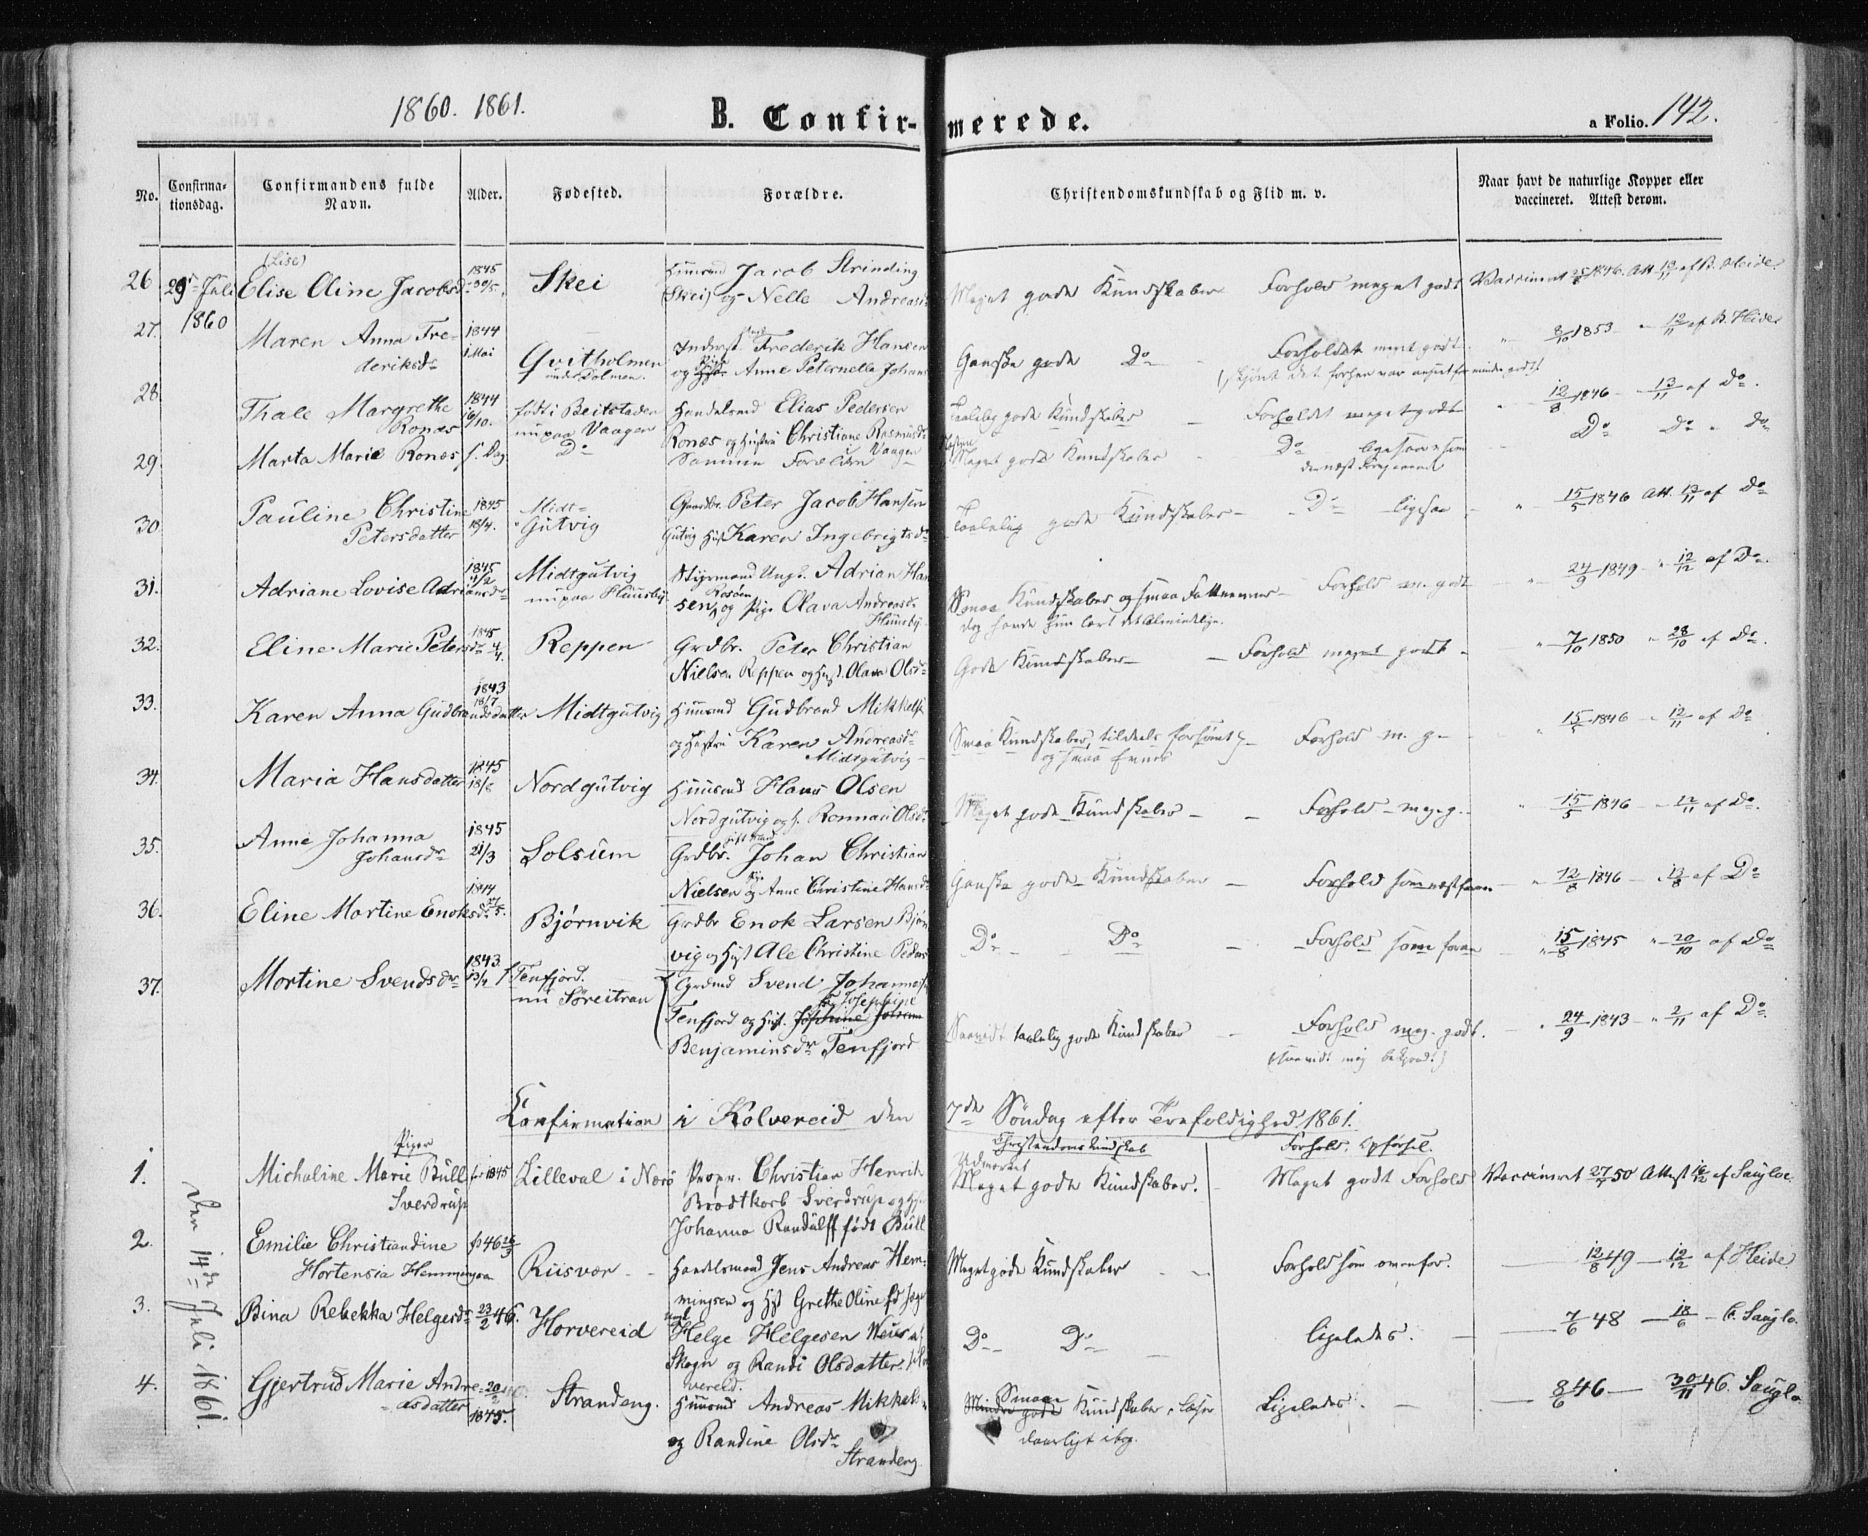 1860. 1861.
B. Confir-merede.
a Folio. 142.
No.
Confirma-
tionsdag.
Confirmandens fulde
Navn.
Alder.
Fødested.
Forældre.
Christendomskundskab og Flid m. v.
Naar havt de naturlige Kopper eller
vaccineret. Attest derom.
26 29 Juli 1860
(Lise)
Elise Oline Jacobsd.
1845 30/5.
Skei
Huusmd Jacob Strinding
(Skei) og Nelle Andreasd.
Meget gode Kundskaber Forhold meget godt Vaccineret 1846. Att.
27.
Maren Anna Fre-
deriksdr
1844
1 Mai
Qvitholmen
Frederik Hansen
og Anne Peternelle Johans
Ganske gode Do Forholdet meget godt
8/10 1853 - 12/11 af
28.
Thale Margrethe
Ronæs
1844
16/10.
født i Beitstaden
nu paa Vaagen
Handelsmd Elias Pedersen
Ronæs og Hustru Christiane Rasmusdr
Vaagen
Taalelig gode Kundskaber Forholdet meget godt
12/8 1846 - 13/11 af Do.
29.
Marta Marie Ronæs
s. Dag
Do
Samme Forældre
Meget gode Kundskaber Do ligesaa som
Do Do " Do
30.
Pauline Christine
Petersdatter
1845
18/4.
Midt-
Gutvig
Gaardbr. Peter Jacob Hansen
Gutvig Hust Karen Ingebrigtsdr
Taalelig gode Kundskaber - Do - ligesaa
15/5 1846 Att. 12/11 af Do
31.
Adriane Lovise Adriansdr
1845
4/2
Midtgutvig
nu paa Huusby
Styrmand Ungk. Adrian Han
sen og Pige Olava Andreasd.
Huusby
Smaa Kundskaber og smaa Fattenemme - Forhold m. godt
dog havde hun lært det Almindelige.
24/9 1849 " 12/12 af Do.
32.
Eline Marie Petersdr
1845
4/4.
Reppen
Grdbr. Peter Christian
Nielsen Reppen og Hust. Olava Olsdr
Gode Kundskaber - Forhold meget godt -
7/10 1850 " 28/10 af Do.
33.
Karen Anna Gudbrandsdatter
1843
18/7
Midtgutvig
Huusmd Gudbrand Mikkels
og Hustru Karen Andreasdr
Midtgutvig
Smaa Kundskaber, tildeels forsømt Forhold m. g -
og smaa Evner
15/5 1846 - 12/11 af Do
34.
Maria Hansdatter
1845
18/6
Nordgutvig
Huusmd Hans Olsen
Nordgutvig og h. Ronnau Olsdr
Meget gode Kundskaber - Forhold - meg. g.
15/5 1846 - 12/11 af Do.
35.
Anne Johanna
Johansdr
1845
21/3
Solsum
Grdbr. Johan Christian
Nielsen og Anne Christine Hansdr
Ganske gode Kundskaber - Forhold som næstforan
12/8 1846 - 12/8 af Do
36.
Eline Martine Enoksdr
1844
Bjørnvik
Grdbr Enok Larsen Bjørn
vig og Hust Ale Christine Peders
Do - Do - Forhold som foran
15/8 1845 " 20/10 af Do
37.
Mortine Svendsdr
1843.
Tenfjord.
nu Søreitran
Grdmd Svend Johannes
Tenfjord og Hust. Josephine
Benjaminsdr Tenfjord
Saavidt taalelig gode Kundskaber - Forhold meg. godt.
(saavidt mig bekjendt)
24/9 1843 - " 2/11 af Do.
Confirmation i Kolvereid den 7de Søndag efter Trefoldighed 1861.
Piger
Christendomskundskab
Forhold. Opførsel.
Den 14de Juli 1861.
1.
Michaline Marie Bull
Sverdrup
1845
Lilleval i Nærø
Propr. Christian Henrik
Brodtkorb Sverdrup og Hu
Johanna Randulff født Bull
Udmærket
Meget gode Kundskaber. - Meget godt Forhold Vaccineret 50 Attest af Saugloe
2.
Emilie Christiandine
Hortensia Hemmingsen
46
Risvær
Handelsmand Jens Andreas Hem-
mingsen og Hst Grethe Oline
Meget gode Kundskaber Forhold som ovenfor.
12/8 49 - 12/12 af Heide.
3.
Bina Rebekka Helgesdr
23/2 46.
Horvereid
Helge Helgesen
Skogn og Randi Olsdatter
Do - Do - ligeledes.
7/6 48 - 18/6 - C. Sauglo.
4.
Gjertrud Marie Andre-
asdatter
20/2
1845.
Strandeng.
Huusmd Andreas Mikkels
og Randine Olsdr
Strandeng
Smaae
Mindre gode Kundskaber, læser
daarligt i bog.
Ligeledes.
8/6 46 - 30/11 46. Sauglo